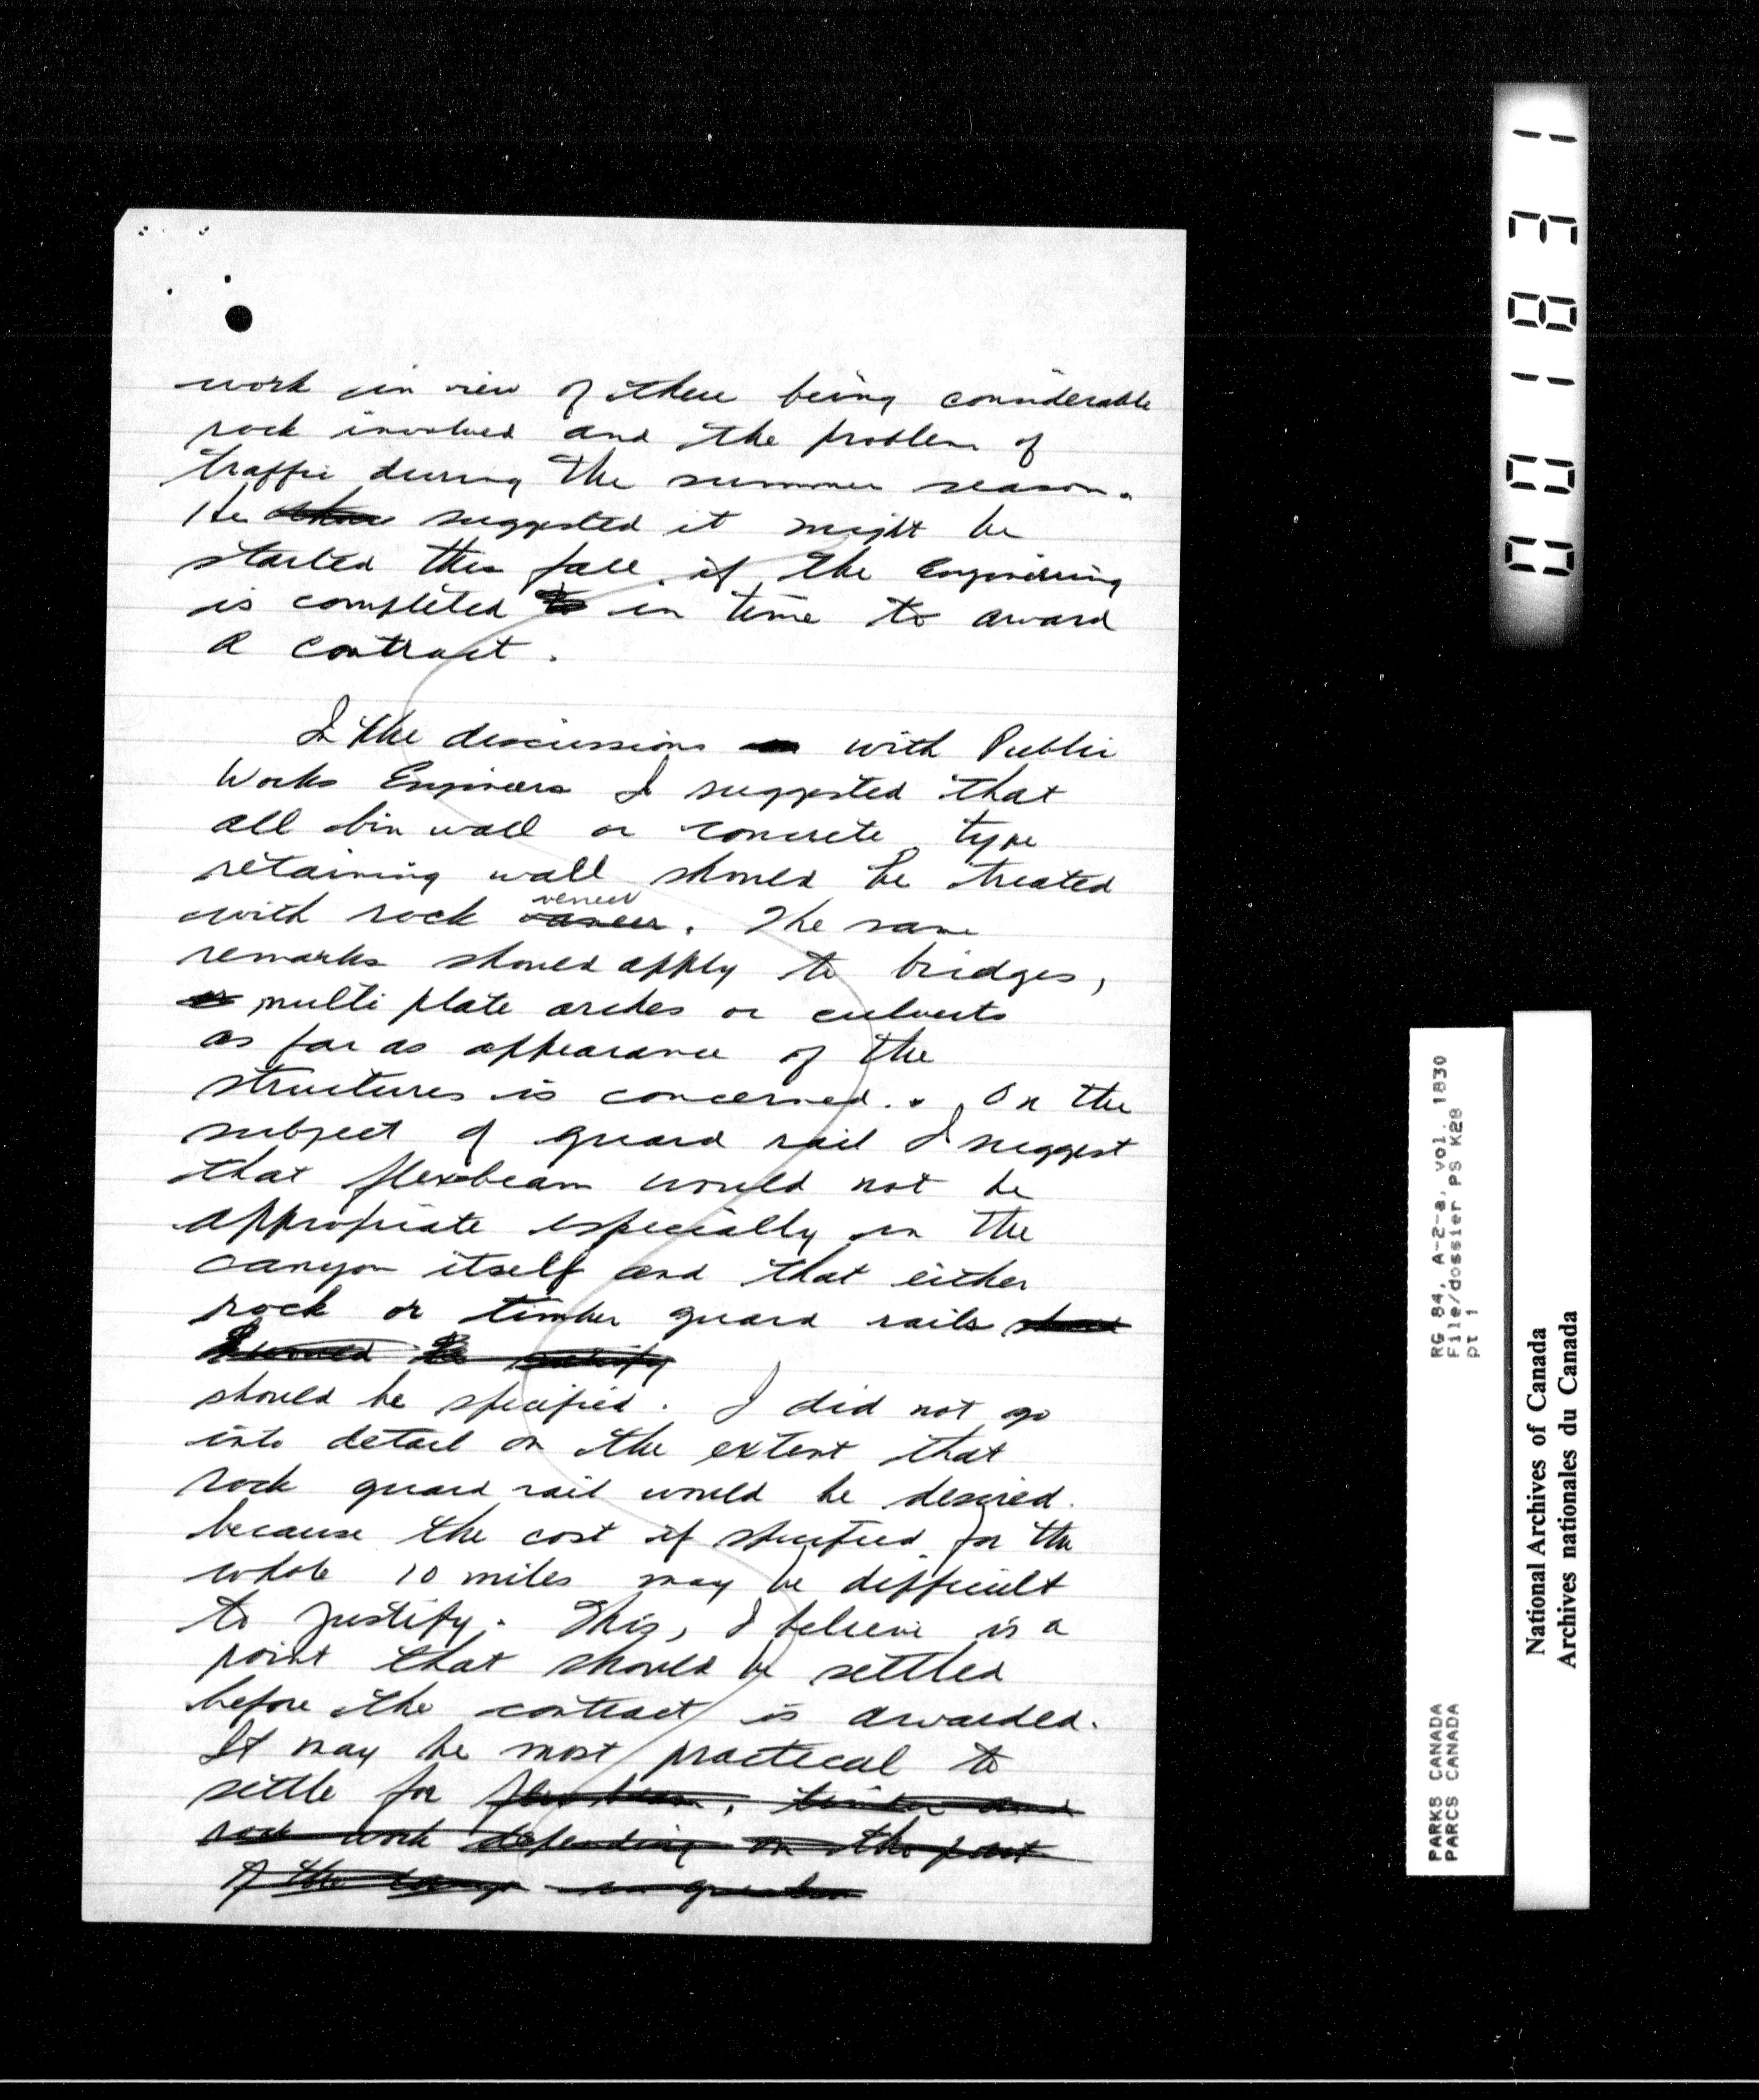 work in view of there being considerable
rock involved and the problem of
traffic during the summer season.
He suggested it might be
started this fall if the Engineering
is completed to in time to award
a contract.
In the discussions on with Public
Works Engineers I suggested that
all bin wall or concrete type
retaining wall should be treated
veneer
with rock vaneer. The same
remarks should apply to bridges,
or multi plate arches or culverts
as far as appearance of the
structures is concerned. On the
subject of guard rail I suggest
that flexbeam would not be
appropriate especially in the
canyon itself and that either
rock or timber guard rails
should be specified. I did not go
into detail on the extent that
rock guard rail would be desired.
because the cost if specified for the
whole 10 miles may be difficult
to justify. This, I believe is a
point that should be settled
before the contract is awarded.
It may be most practical to
settle for flex beam, timber and
rock work depending on the part
of the canyon in question
0001831
RG 84, A-2-a, vol. 1830
File/dossier PS K28
pt 1
PARKS CANADA
PARCS CANADA
National Archives of Canada
Archives nationales du Canada